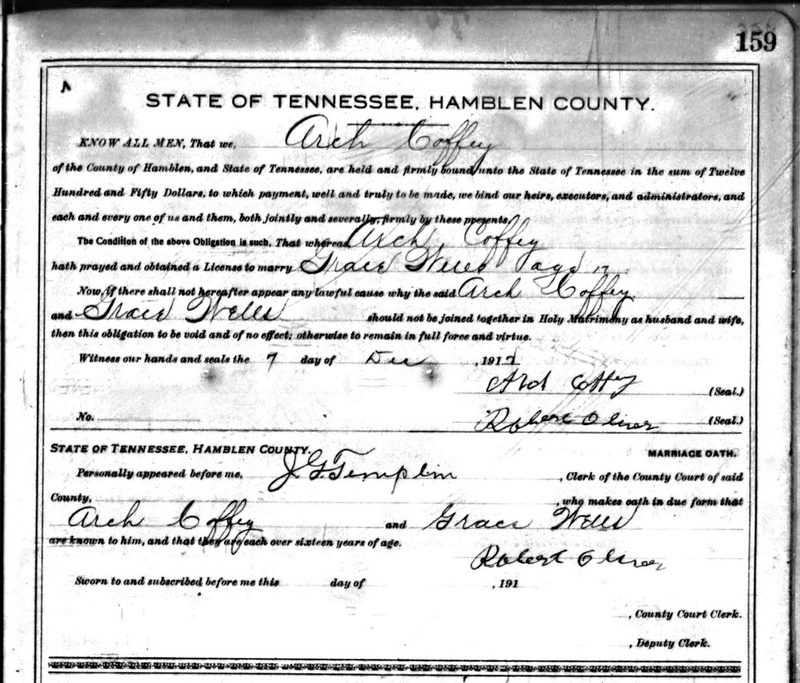 159
STATE OF TENNESSEE, HAMBLEN COUNTY.
KNOW ALL MEN, That we, Arch Coffey
of the County of Hamblen, and State of Tennessee, are held and firmly bound unto the State of Tennessee in the sum of Twelve
Hundred and Fifty Dollars, to which payment, well and truly to be made, we bind our heirs, executors, and administrators, and
each and every one of us and them, both jointly and severally, firmly by these presents.
The Condition of the above Obligation is such, That whereas Arch Coffey
hath prayed and obtained a License to marry Grace Wells age 17
Now, if there shall not hereafter appear any lawful cause why the said Arch Coffey
and Grace Wells should not be joined together in Holy Matrimony as husband and wife,
then this obligation to be void and of no effect; otherwise to remain in full force and virtue.
Witness our hands and seals the 7 day of Dec , 1917
Coffey (Seal.)
No. Robert Oliver (Seal.)
STATE OF TENNESSEE, HAMBLEN COUNTY. MARRIAGE OATH.
Personally appeared before me, J. G. Templin , Clerk of the County Court of said
County, , who makes oath in due form that
Arch Coffey and Grace Wells
are known to him, and that they are each over sixteen years of age.
Robert Oliver
Sworn to and subscribed before me this day of , 191
, County Court Clerk.
, Deputy Clerk.